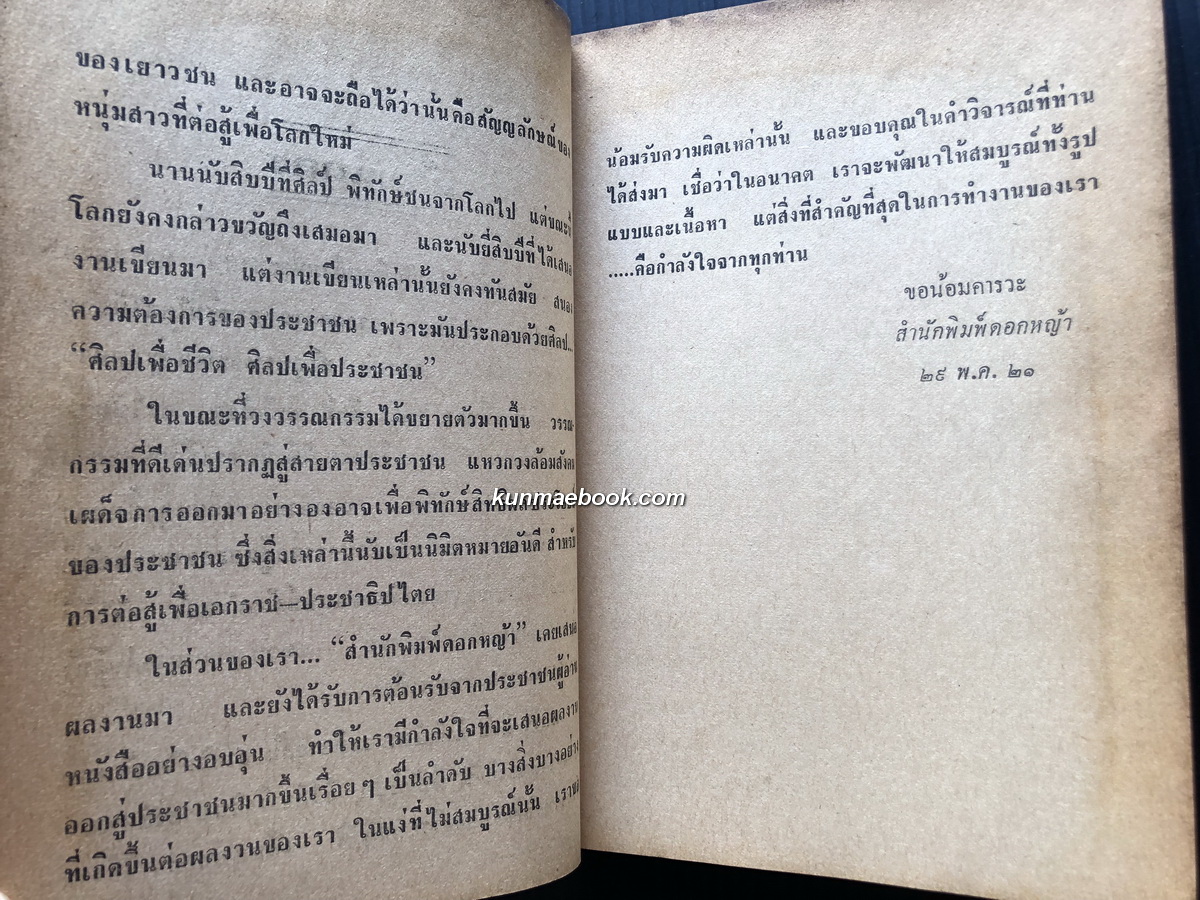 ของเยาวชน และอาจจะถือได้ว่านั้นคือสัญญลักษณ์ของ
หนุ่มสาวที่ต่อสู้เพื่อโลกใหม่
นานนับสิบปีที่ศิลป์ พิทักษ์ชนจากโลกไป แต่ขณะนี้
โลกยังคงกล่าวขวัญถึงเสมอมา และนับยี่สิบปีที่ได้เสนอ
งานเขียนมา แต่งานเขียนเหล่านั้นยังคงทันสมัย สนอง
ความต้องการของประชาชน เพราะมันประกอบด้วยศิลป...
“ศิลปเพื่อชีวิต ศิลปเพื่อประชาชน”
ในขณะที่วงวรรณกรรมได้ขยายตัวมากขึ้น วรรณ-
กรรมที่ดีเด่นปรากฏสู่สายตาประชาชน แหวกวงล้อมสังคม
เผด็จการออกมาอย่างองอาจเพื่อพิทักษ์
ของประชาชน ซึ่งสิ่งเหล่านี้นับเป็นนิมิตหมายอันดี สำหรับ
การต่อสู้เพื่อเอกราช—ประชาธิปไตย
ในส่วนของเรา... “สำนักพิมพ์ดอกหญ้า” เคยเสนอ
ผลงานมา และยังได้รับการต้อนรับจากประชาชนผู้อ่าน
หนังสืออย่างอบอุ่น ทำให้เรามีกำลังใจที่จะเสนอผลงาน
ออกสู่ประชาชนมากขึ้นเรื่อยๆ เป็นลำดับ บางสิ่งบางอย่าง
ที่เกิดขึ้นต่อผลงวนของเรา ในแง่ที่ไม่สมบูรณ์นั้น
น้อมรับความผิดเหล่านั้น และขอบคุณในคำวิจารณ์ที่ท่าน
ได้ส่งมา เชื่อว่าในอนาคต เราจะพัฒนาให้สมบูรณ์ทั้งรูป
แบบและเนื้อหา แต่สิ่งที่สำคัญที่สุดในการทำงานของเรา
.....คือกำลังใจจากทุกท่าน
ขอน้อมคารวะ
สำนักพิมพ์ดอกหญ้า
๒๙ พ.ค. ๒๑
kunmaebook.com